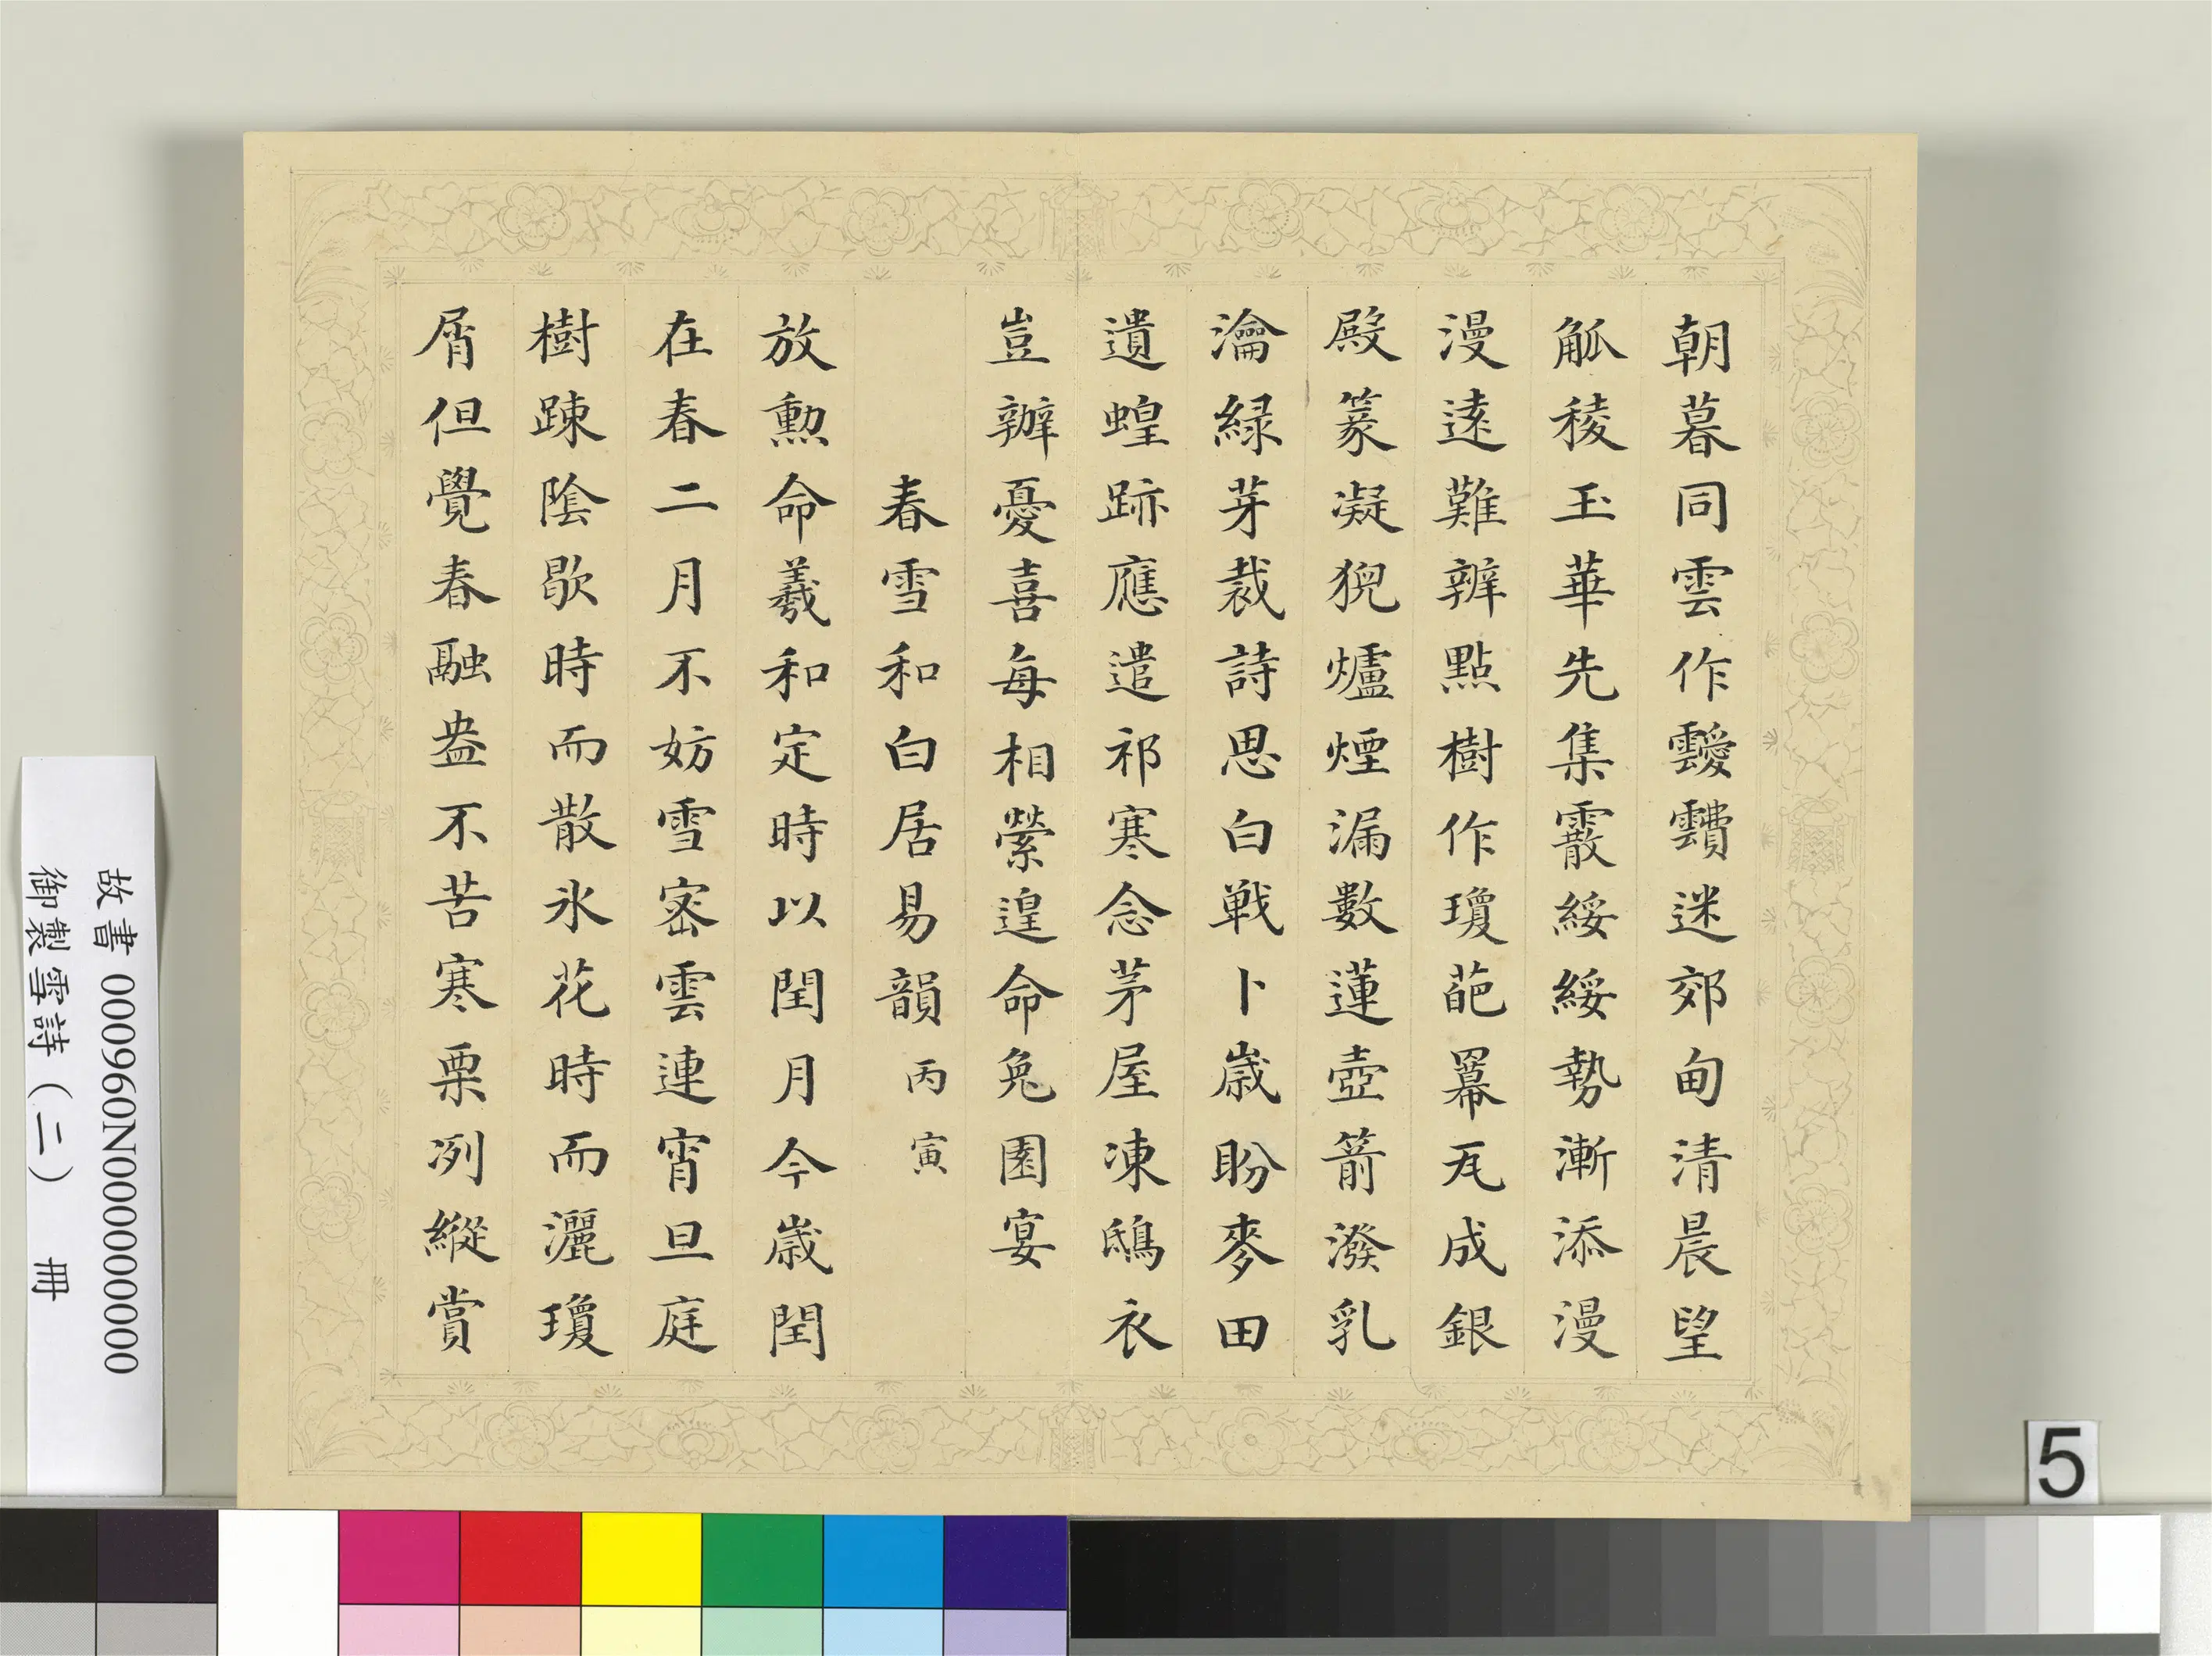 朝暮同雲作靉靅迷郊甸清晨望
觚稜玉華先集霰綏綏勢漸添漫
漫遠難辨點樹作瓊葩冪瓦成銀
殿篆凝猊爐煙漏數蓮壺箭潑乳
瀹緑芽裁詩思白戦卜歲盼麥田
遺蝗跡應遣祁寒念茅屋凍鴟衣
豈辦憂喜每相縈遑命兔園宴
春雪和白居易韻丙寅
放勲命羲和定時以閏月今歲閏
在春二月不妨雪密雲連宵旦庭
樹踈陰歇時而散氷花時而灑瓊
屑但覺春融盎不苦寒栗冽縱賞
故書 000960N000000000
御製雪詩（二） 冊
5